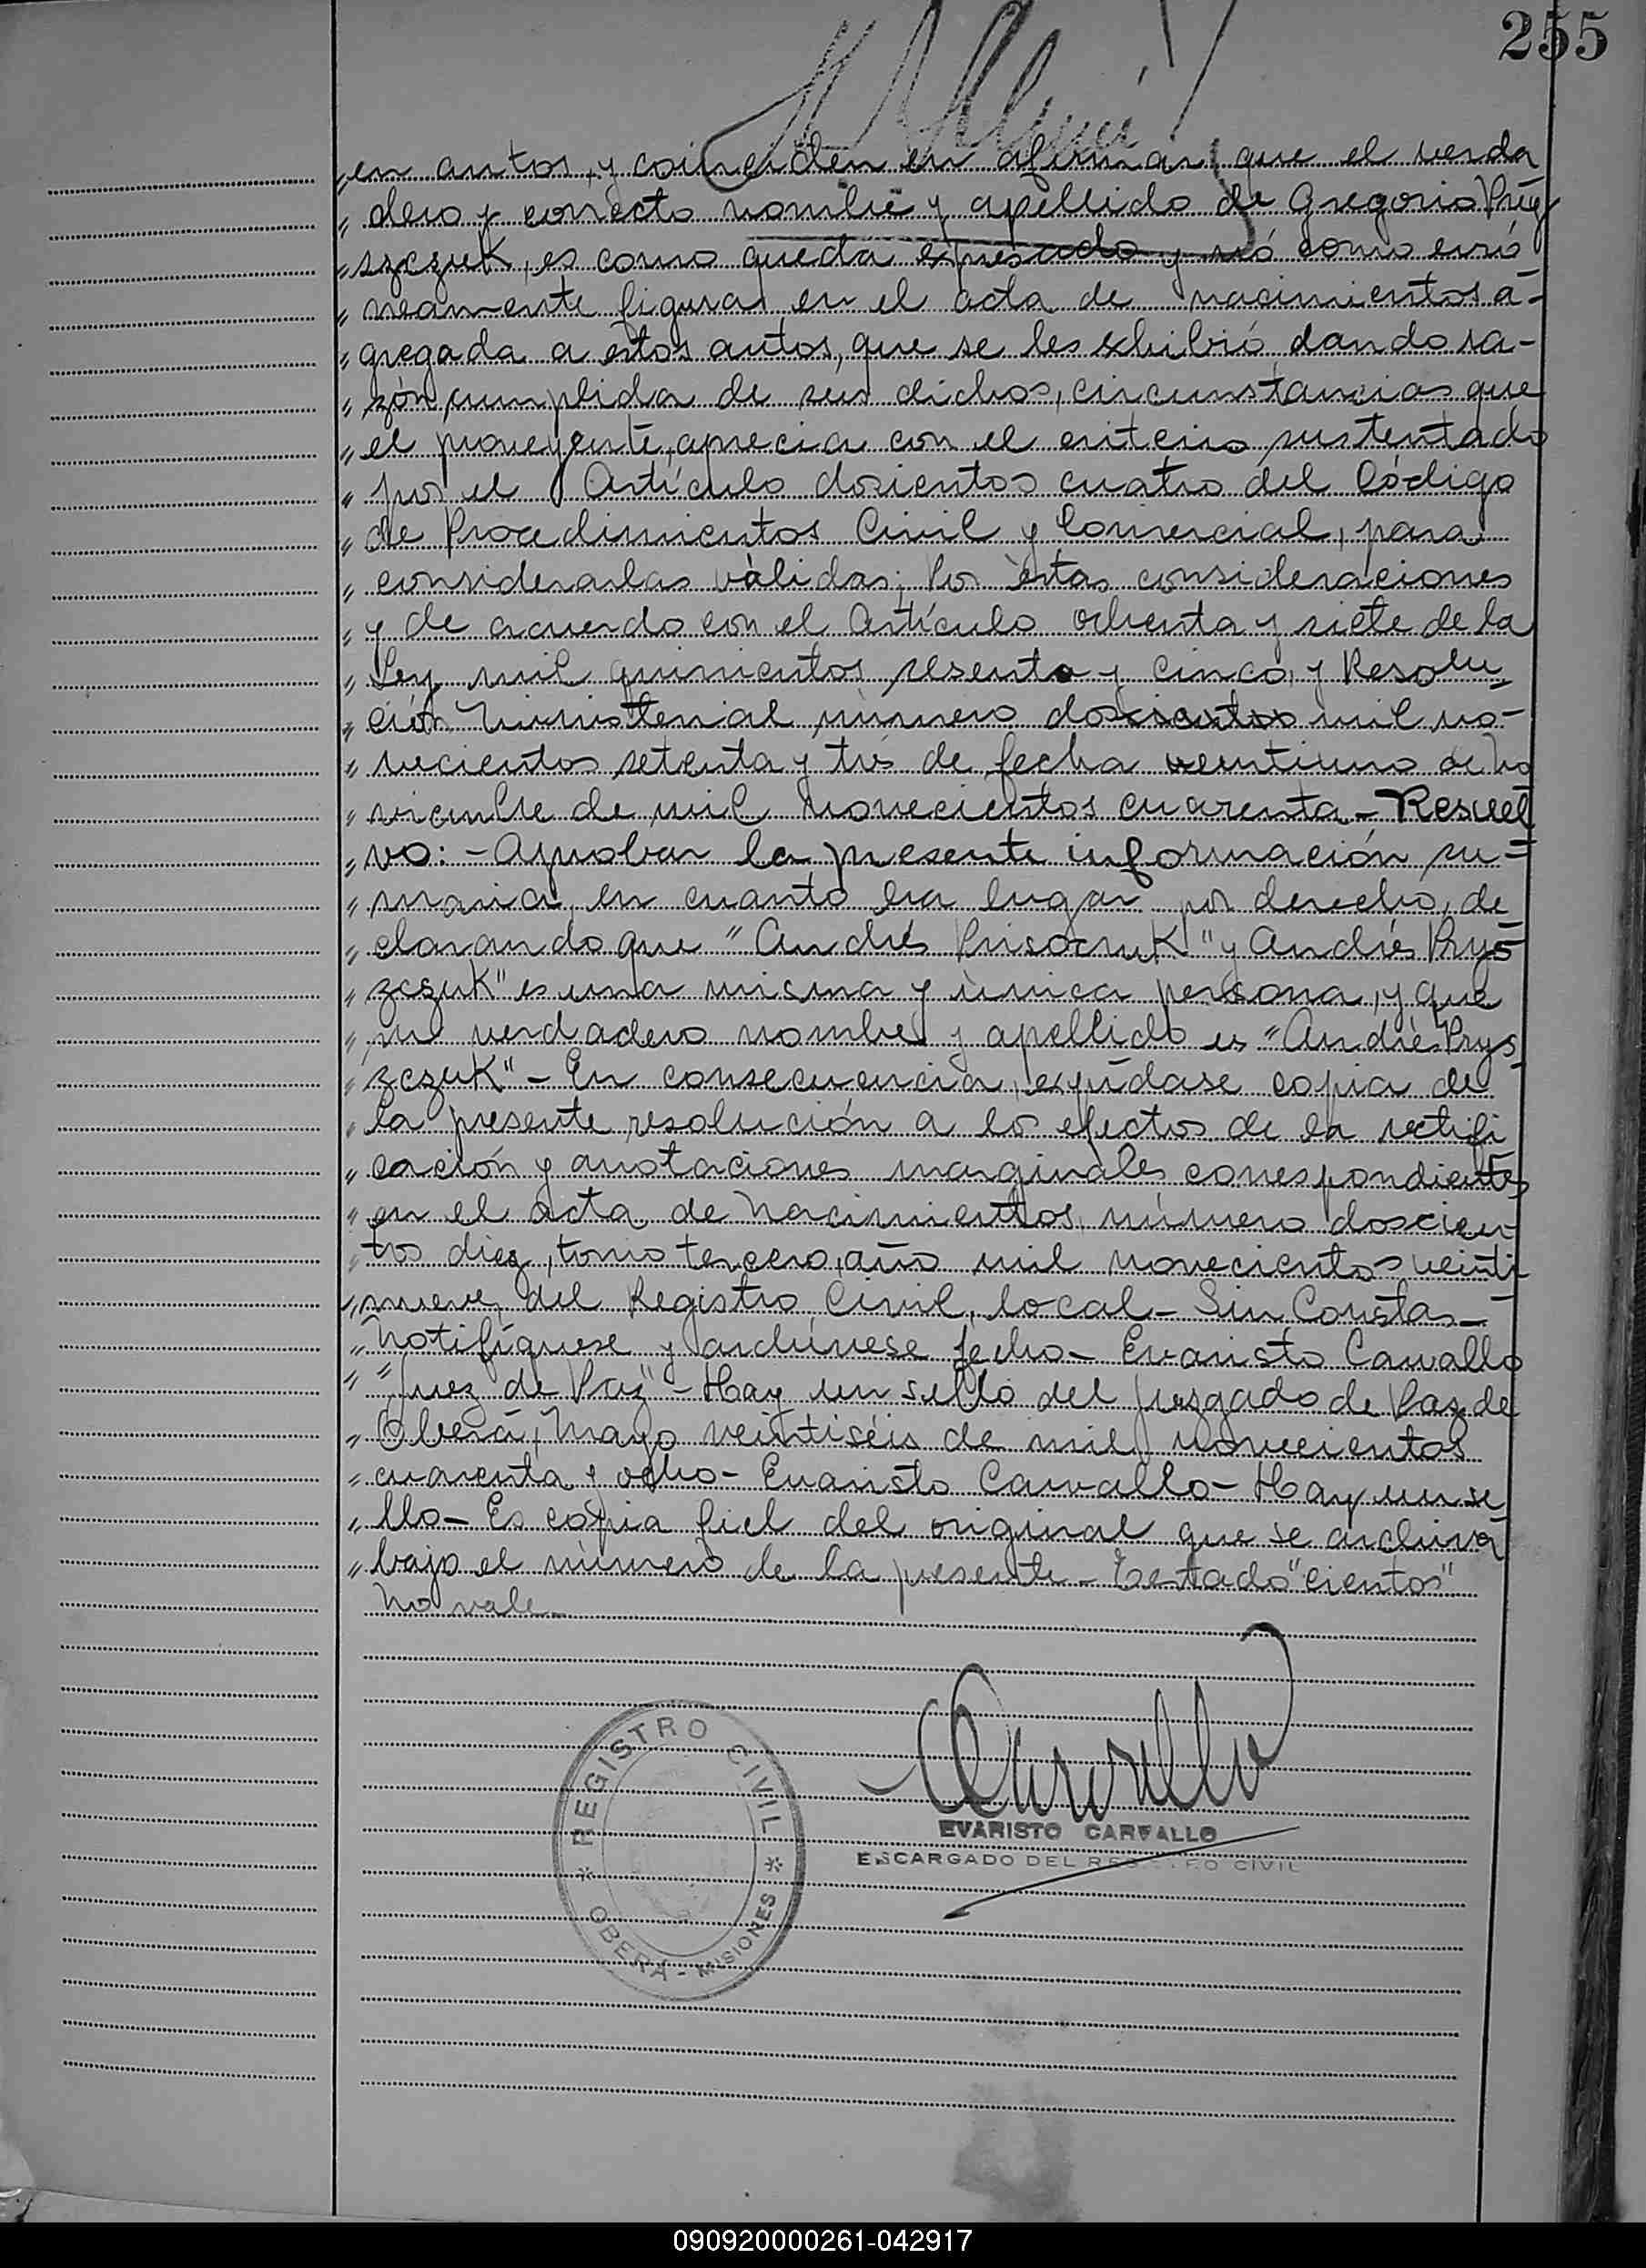 255
„en autos, y coinciden en afirmar, que el verda
„dero y correcto nombre y apellido de Gregorio Prys
„szczuk, es como queda expresado y nó como erró
„neamente figura en el acta de nacimientos a-
„gregada a estos autos, que se les exhibió dando ra-
„zón cumplida de sus dichos, circunstancias que
„el proveyente, aprecia con el criterio sustentado
„por el Artículo dosientos cuatro del Código
„de Procedimientos Civil y Comercial, para
„considerarlas válidas; Por éstas consideraciones
„y de acuerdo con el Artículo ochenta y siete de la
„Ley mil quinientos sesenta y cinco, y Resolu-
„ción Ministerial número doscientos mil no-
„vecientos setenta y trés de fecha veintiuno de No
„viembre de mil novecientos cuarenta - Resuel
„vo: - Aprobar la presente información su-
„maria, en cuanto ha lugar por derecho, de
„clarando que "Andrés Prisocruk" y Andrés Prys
„zczuk" es una misma y única persona, y que
„su verdadero nombre y apellido es "Andrés Prys
„zczuk" - En consecuencia, expídase copia de
„la presente resolución a los efectos de la rectifi
„cación y anotaciones marginales correspondientes
„en el acta de Nacimientos, número doscien
„tos diez, tomo tercero, año mil novecientos veinti
„nueve, del Registro Civil, local - Sin Costas -
„Notifíquese y archívese fecho - Evaristo Carvallo
„"Juez de Paz" - Hay un sello del Juzgado de Paz de
„Oberá, Mayo veintiséis de mil novecientos
„cuarenta y ocho - Evaristo Carvallo - Hay un se
„llo - Es copia fiel del original que se archiva
„bajo el número de la presente - Testado "cientos"
No vale -
Carvallo
EVARISTO CARVALLO
ENCARGADO DEL REGISTRO CIVIL
REGISTRO CIVIL
OBERA - MISIONES
090920000261-042917